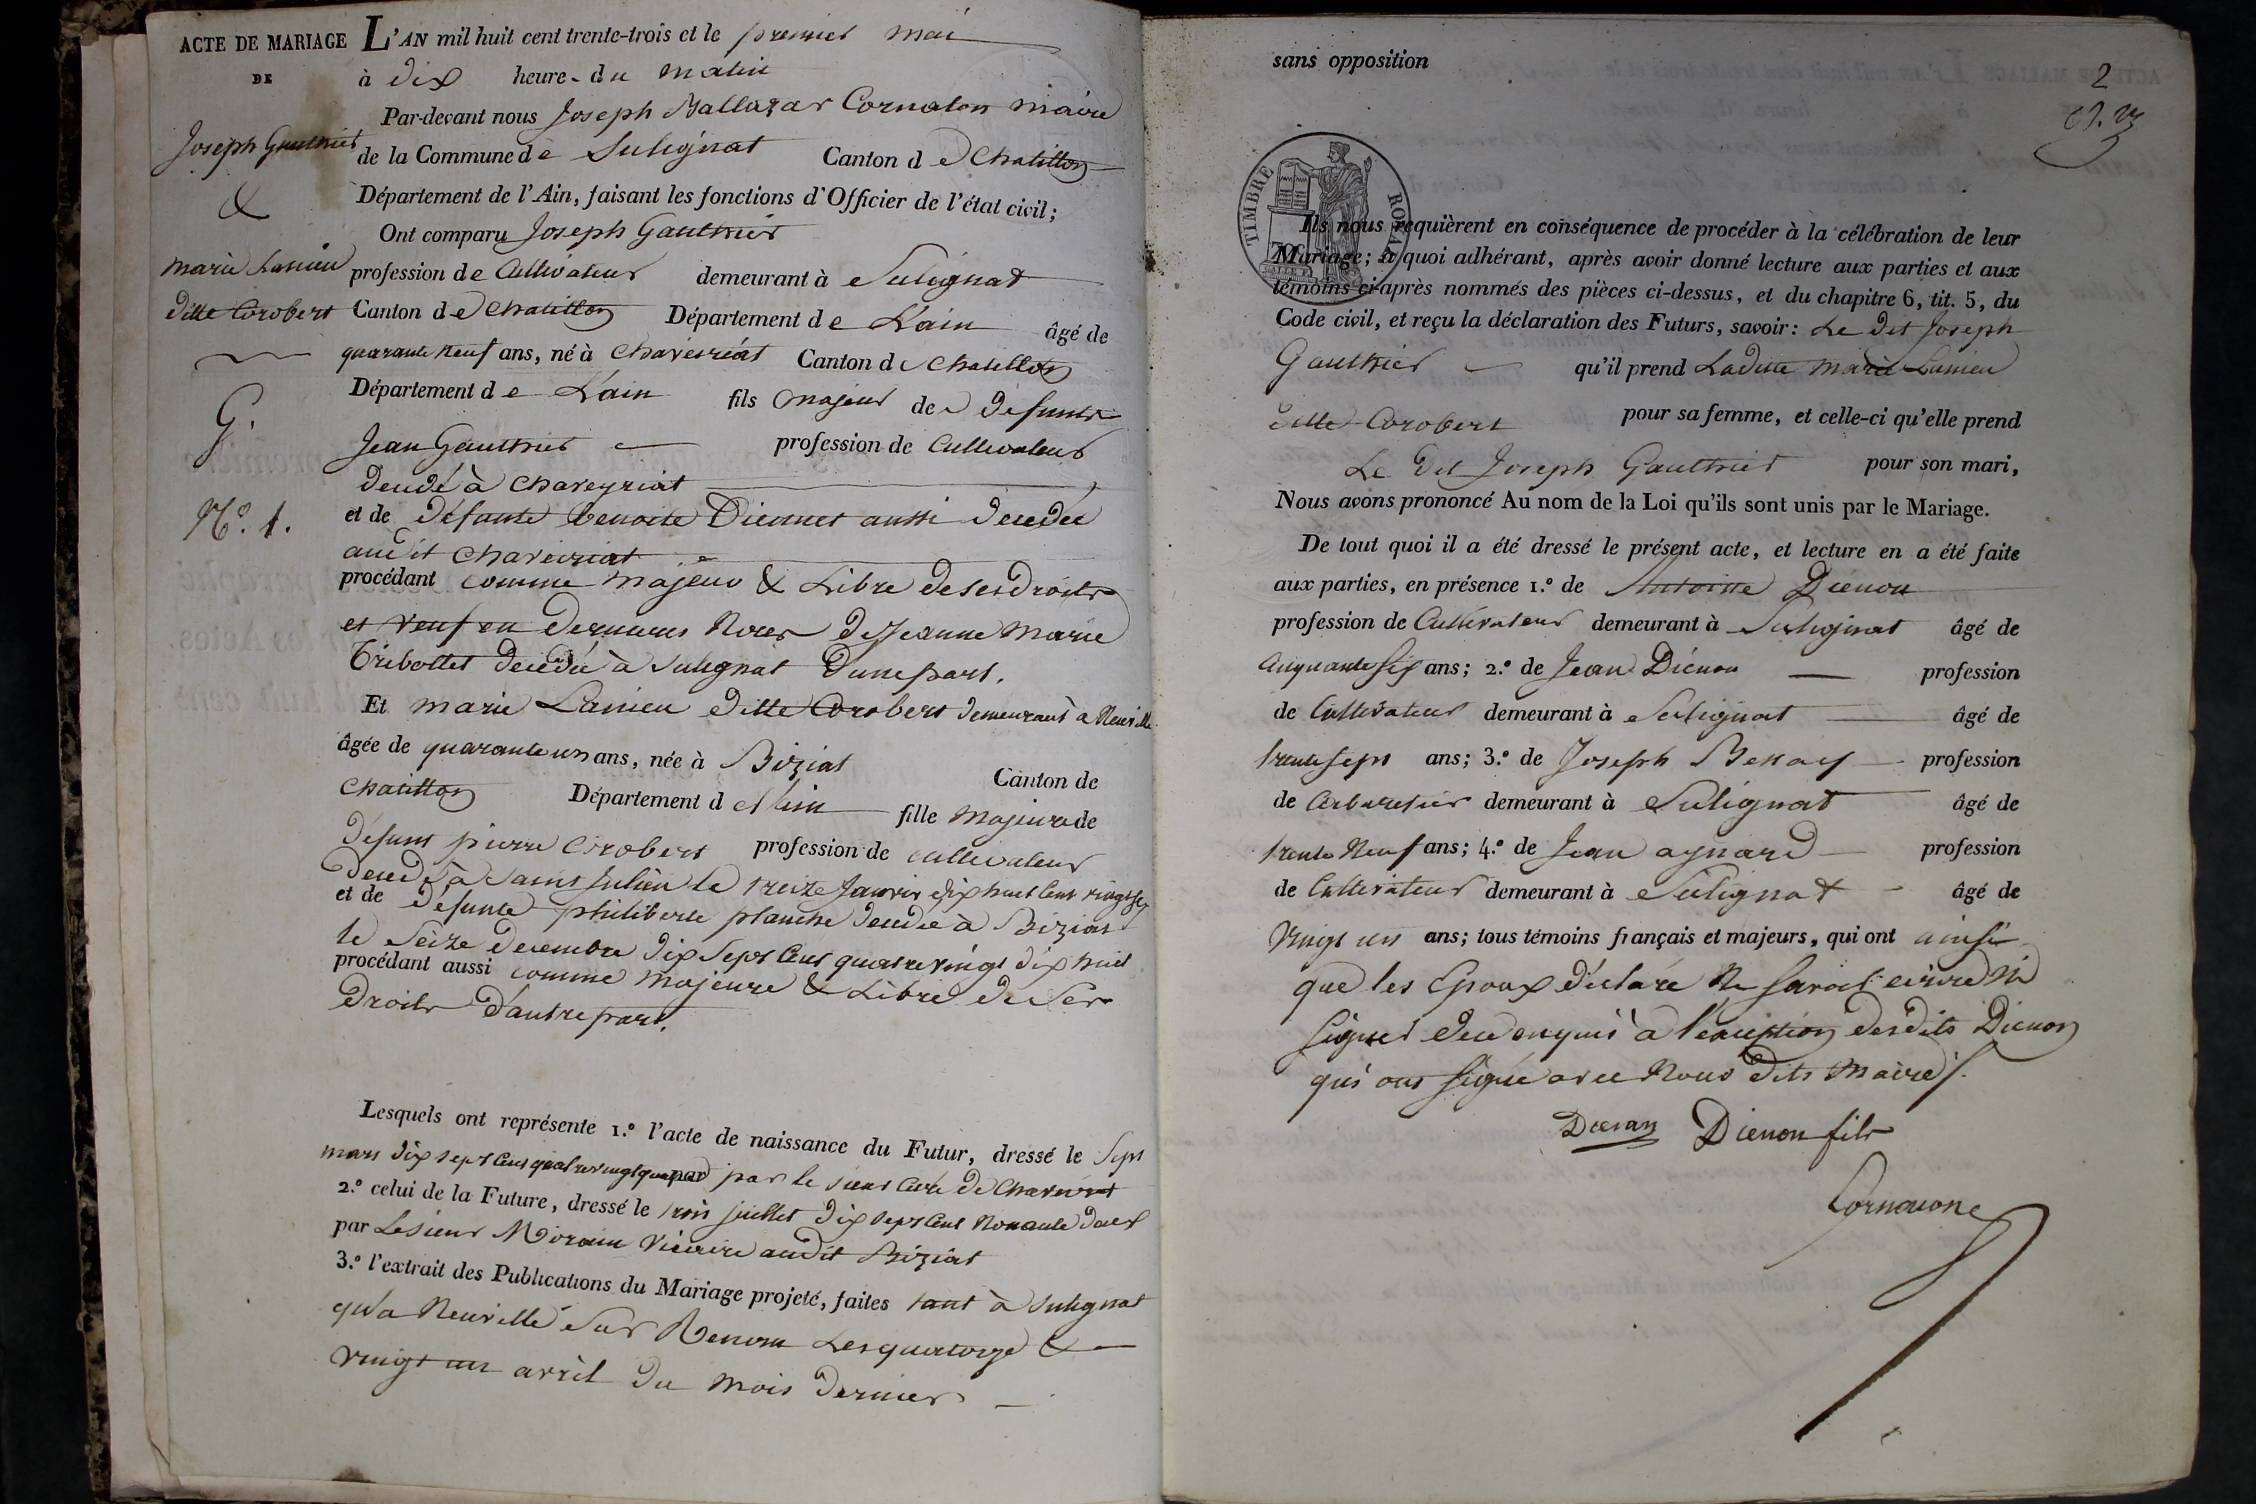 ACTE DE MARIAGE
DE
Joseph Gauthier
&
Marie Lanieu
ditte Corobert
G.
N.º 1.
L'AN mil huit cent trente-trois et le premier mai
à dix heure du matin
Par-devant nous Joseph Baltazar Cornaton maire
de la Commune de Sulignat Canton de Chatillon
Département de l'Ain, faisant les fonctions d'Officier de l'état civil;
Ont comparu Joseph Gauthier
profession de Cultivateur demeurant à Sulignat
Canton de Chatillon Département de L'ain âgé de
quarante neuf ans, né à Chaveiriat Canton de Chatillon
Département de L'ain fils majeur de defunt
Jean Gauthier profession de Cultivateur
decedé à Chaveyriat
et de défunte Benoite Diennet aussi decedée
audit Chaveiriat
procédant comme majeur & Libre de ses droits
et veuf en dernieres Noces de Jeanne Marie
Tribollet decedée à Sulignat d'une part.
Et marie Lanieu ditte Corobert demeurant à Neuville
âgée de quarante un ans, née à Biziat Canton de
Chatillon Département de L'ain fille majeure de
défunt pierre Corobert profession de cultivateur
decedé à Saint Julien le treize Janvier dix huit cent vingt six
et de défunte philiberte planche decedée à Biziat
le seize decembre dix sept cent quatre vingt dix huit
procédant aussi comme majeure & Libre de Ses
Droits d'autre part.
Lesquels ont représente 1.º l'acte de naissance du Futur, dressé le Sept
mars dix sept cent quatre vingt quatre par le sieur Curé de Chaveiriat
2.º celui de la Future, dressé le trois juillet dix sept cent Nonante deux
par Le sieur Morain Vicaire audit Biziat
3.º l'extrait des Publications du Mariage projeté, faites tant à Sulignat
qu'a Neuville Sur Renom Les quatorze &
vingt un avril du mois dernier
sans opposition
2
TIMBRE ROYAL
Ils nous requièrent en conséquence de procéder à la célébration de leur
Mariage; à quoi adhérant, après avoir donné lecture aux parties et aux
témoins ci-après nommés des pièces ci-dessus, et du chapitre 6, tit. 5, du
Code civil, et reçu la déclaration des Futurs, savoir: Le dit Joseph
Gauthier qu'il prend Laditte Marie Lanieu
ditte Corobert pour sa femme, et celle-ci qu'elle prend
Le dit Joseph Gauthier pour son mari,
Nous avons prononcé Au nom de la Loi qu'ils sont unis par le Mariage.
De tout quoi il a été dressé le présent acte, et lecture en a été faite
aux parties, en présence 1.º de Antoine Dienon
profession de Cultivateur demeurant à Sulignat âgé de
Cinquante six ans; 2.º de Jean Dienon profession
de Cultivateur demeurant à Sulignat âgé de
trente sept ans; 3.º de Joseph profession
de Cabaretier demeurant à Sulignat âgé de
trente Neuf ans; 4.º de Jean aynard profession
de Cultivateur demeurant à Sulignat âgé de
vingt un ans; tous témoins français et majeurs, qui ont ainsi
que les Epoux déclaré Ne Savoir ecrire Ni
Signer de ce enquis à l'exception desdits Dienon
qui ont Signé avec Nous dits Maire
Dienon fils